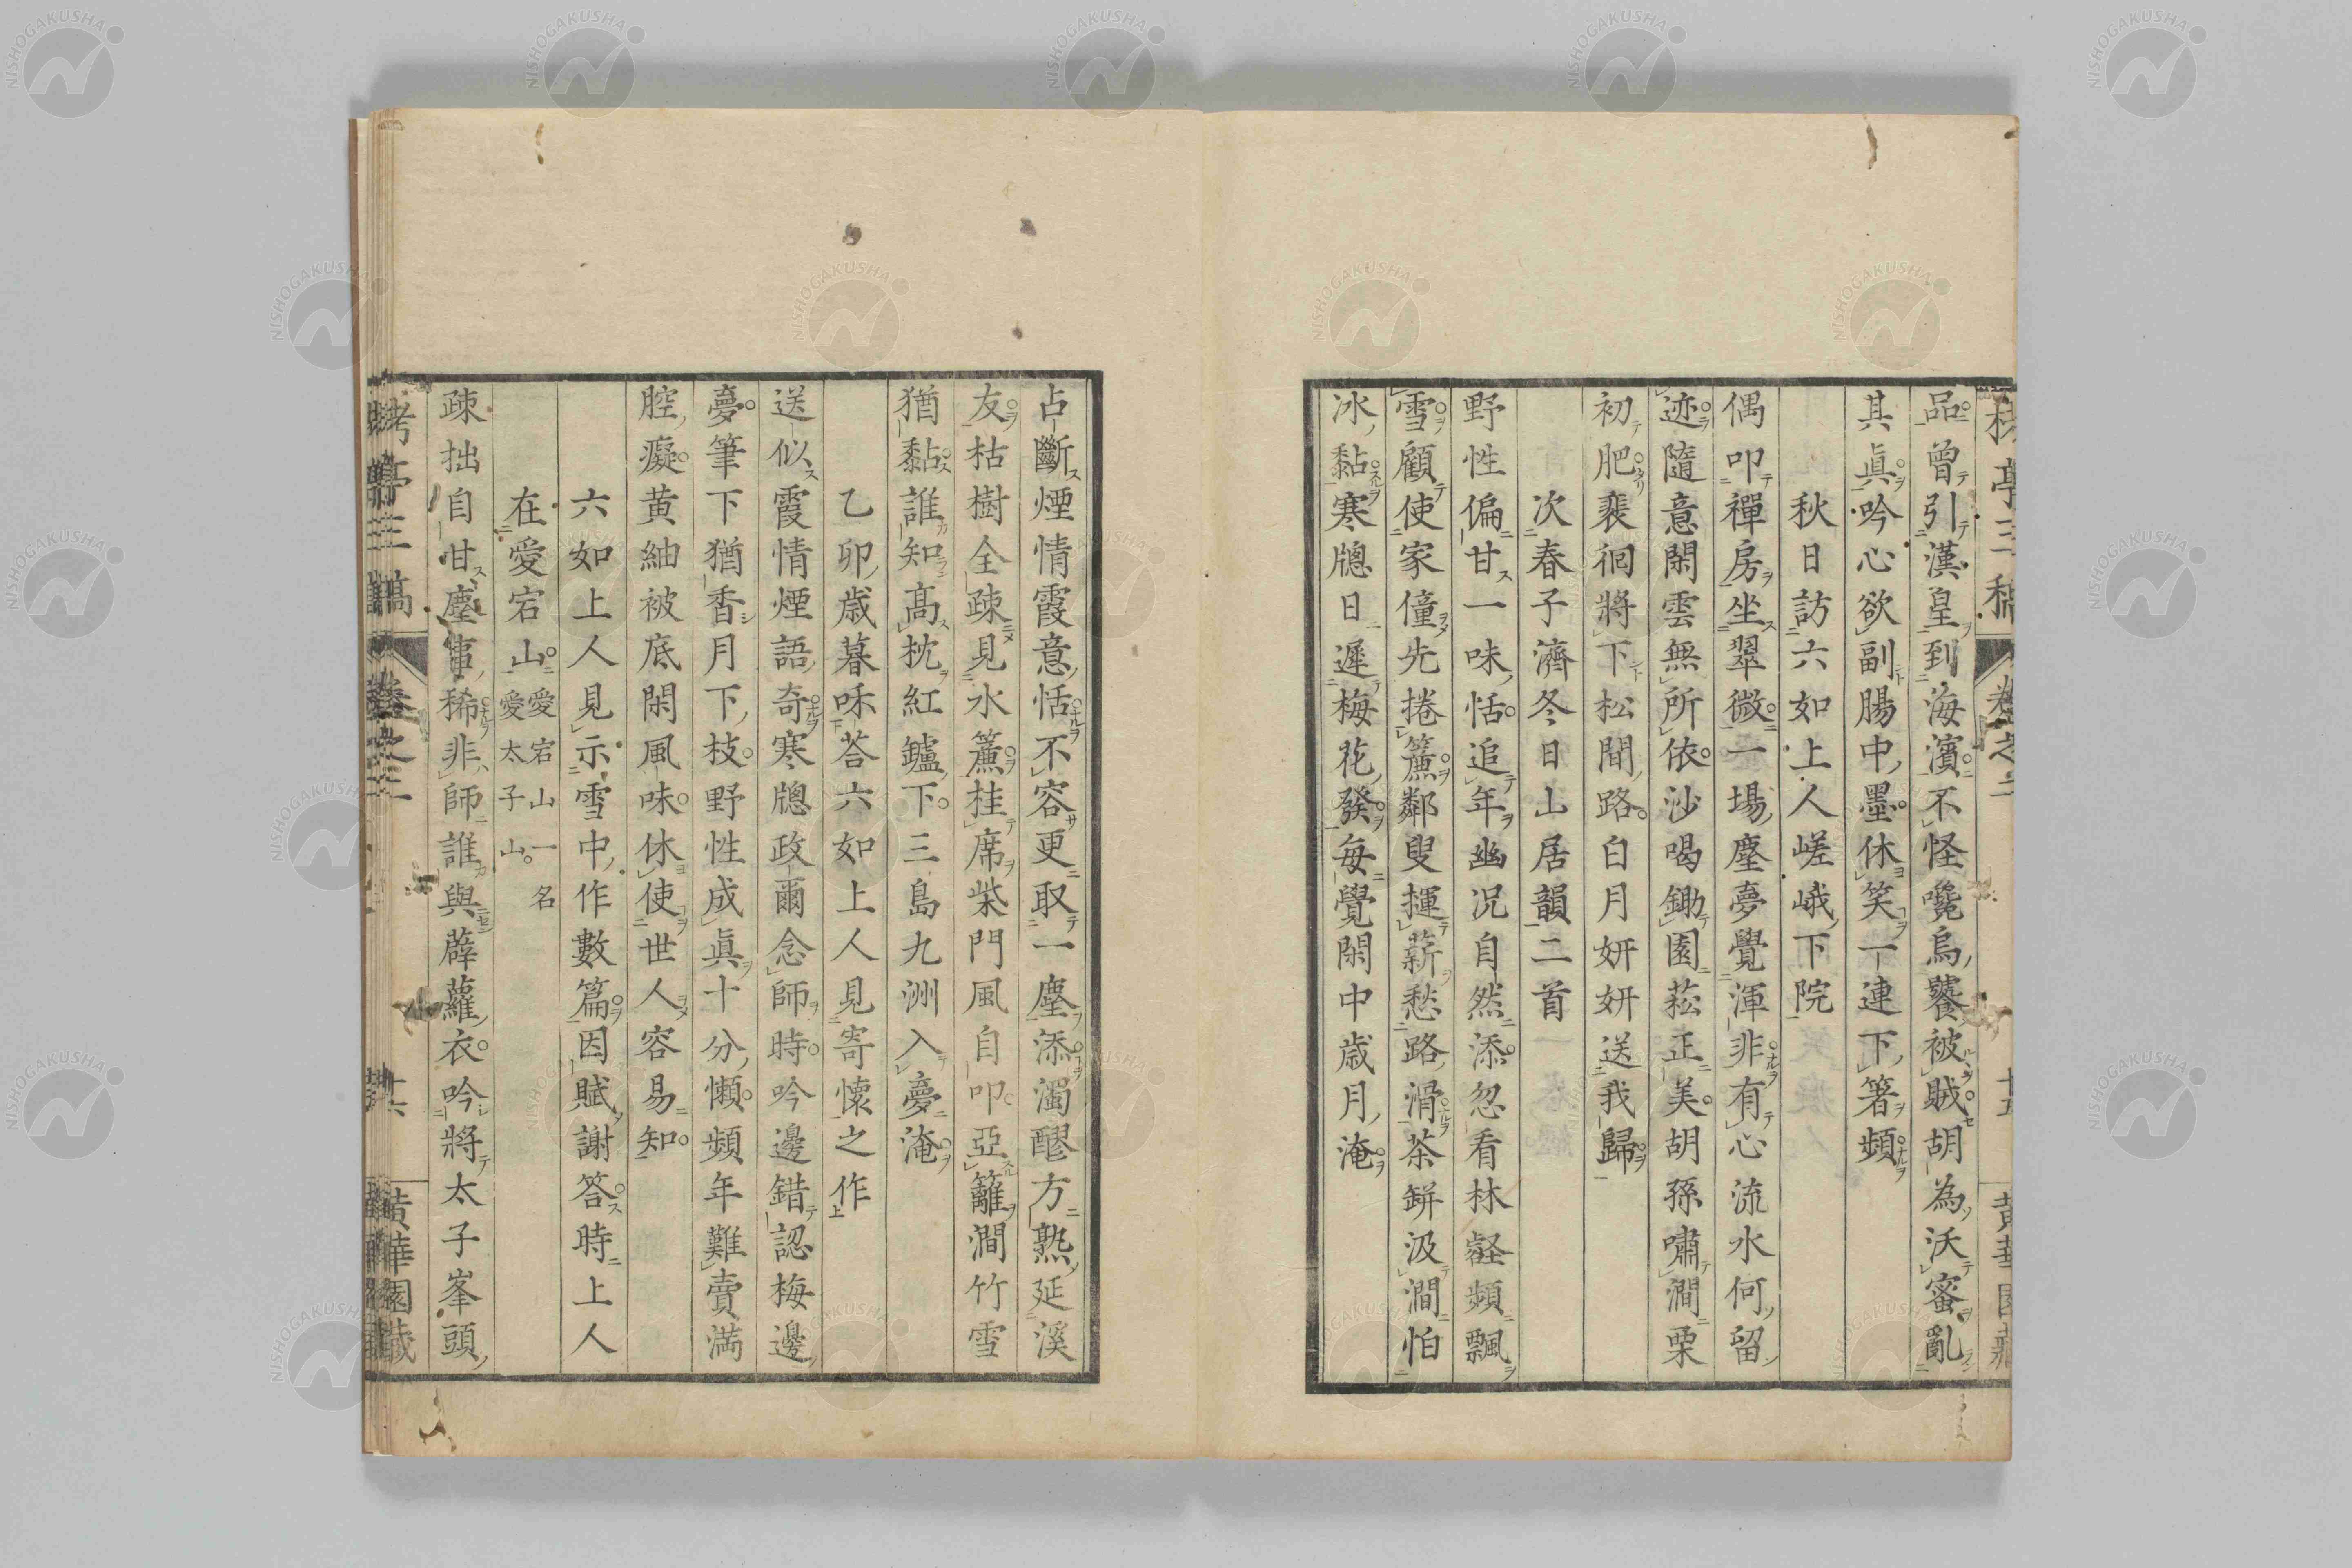 品曾引漢皇到海濱不怪嚵烏饕被賊胡為沃蜜亂
其眞吟心欲副腸中墨休笑一連下箸頻
秋日訪六如上人嵯峨下院
偶叩禪房坐翠微一場塵夢覺渾非有心流水何留
迹隨意閑雲無所依沙喝鋤園菘正美胡孫嘯澗栗
初肥裴徊將下松間路白月妍妍送我歸
次春子濟冬日山居韻二首
野性偏甘一味恬追年幽況自然添忽看林壑頻飄
雪顧使家僮先捲簾鄰叟揰薪愁路滑茶缾汲澗怕
冰黏寒牕日遲梅花發每覺閑中歲月淹
占斷煙情霞意恬不容更取一塵添濁醪方熟延溪
友枯樹全疎見水簾挂席柴門風自叩亞籬澗竹雪
猶黏誰知高枕紅鑪下三島九洲入夢淹
乙卯歲暮咊荅六如上人見寄懷之作
送似霞情煙語奇寒牕政爾念師時吟邊錯認梅邊
夢筆下猶香月下枝野性成眞十分懶頻年難賣滿
腔癡黄紬被底閑風味休使世人容易知
六如上人見示雪中作數篇因賦謝答時上人
在愛宕山愛宕山一名愛太子山
疎拙自甘塵事稀非師誰與薜蘿衣吟將太子峯頭
卷之二
黄華園藏